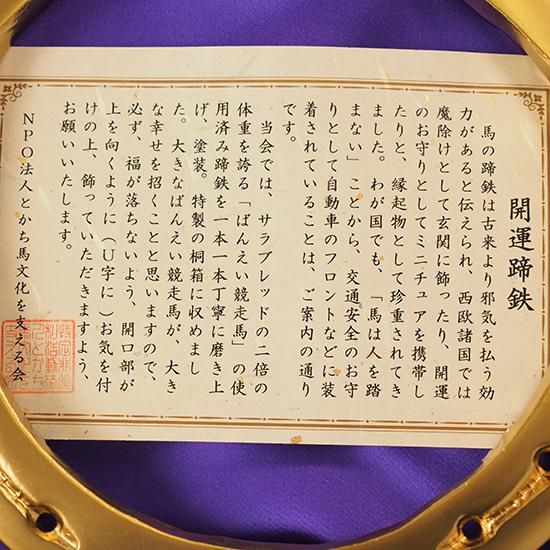 開運蹄鉄
馬の蹄鉄は古来より邪気を払う効
力があると伝えられ、西欧諸国では
魔除けとして玄関に飾ったり、開運
のお守りとしてミニチュアを携帯し
たりと、縁起物として珍重されてき
ました。わが国でも、「馬は人を踏
まない」ことから、交通安全のお守
りとして自動車のフロントなどに装
着されていることは、ご案内の通り
です。
当会では、サラブレッドの二倍の
体重を誇る「ばんえい競走馬」の使
用済み蹄鉄を一本一本丁寧に磨き上
げ、塗装。特製の桐箱に収めまし
た。大きなばんえい競走馬が、大き
な幸せを招くことと思いますので、
必ず、福が落ちないよう、開口部が
上を向くように（U字に）お気を付
けの上、飾っていただきますよう、
お願いいたします。
NPO法人とかち馬文化を支える会